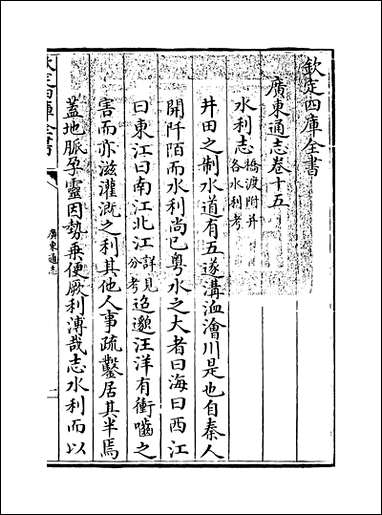 欽定四庫全書
廣東通志卷十五
水利志橋渡附并各水利考
井田之制水道有五遂溝洫澮川是也自秦人
開阡陌而水利尚已粤水之大者曰海曰西江
曰東江曰南江北江詳見分考迢邈汪洋有衝嚙之
害而亦滋灌溉之利其他人事疏鑿居其半焉
蓋地脈孕靈因勢乗便厥利溥哉志水利而以
欽定四庫全書
廣東通志
一